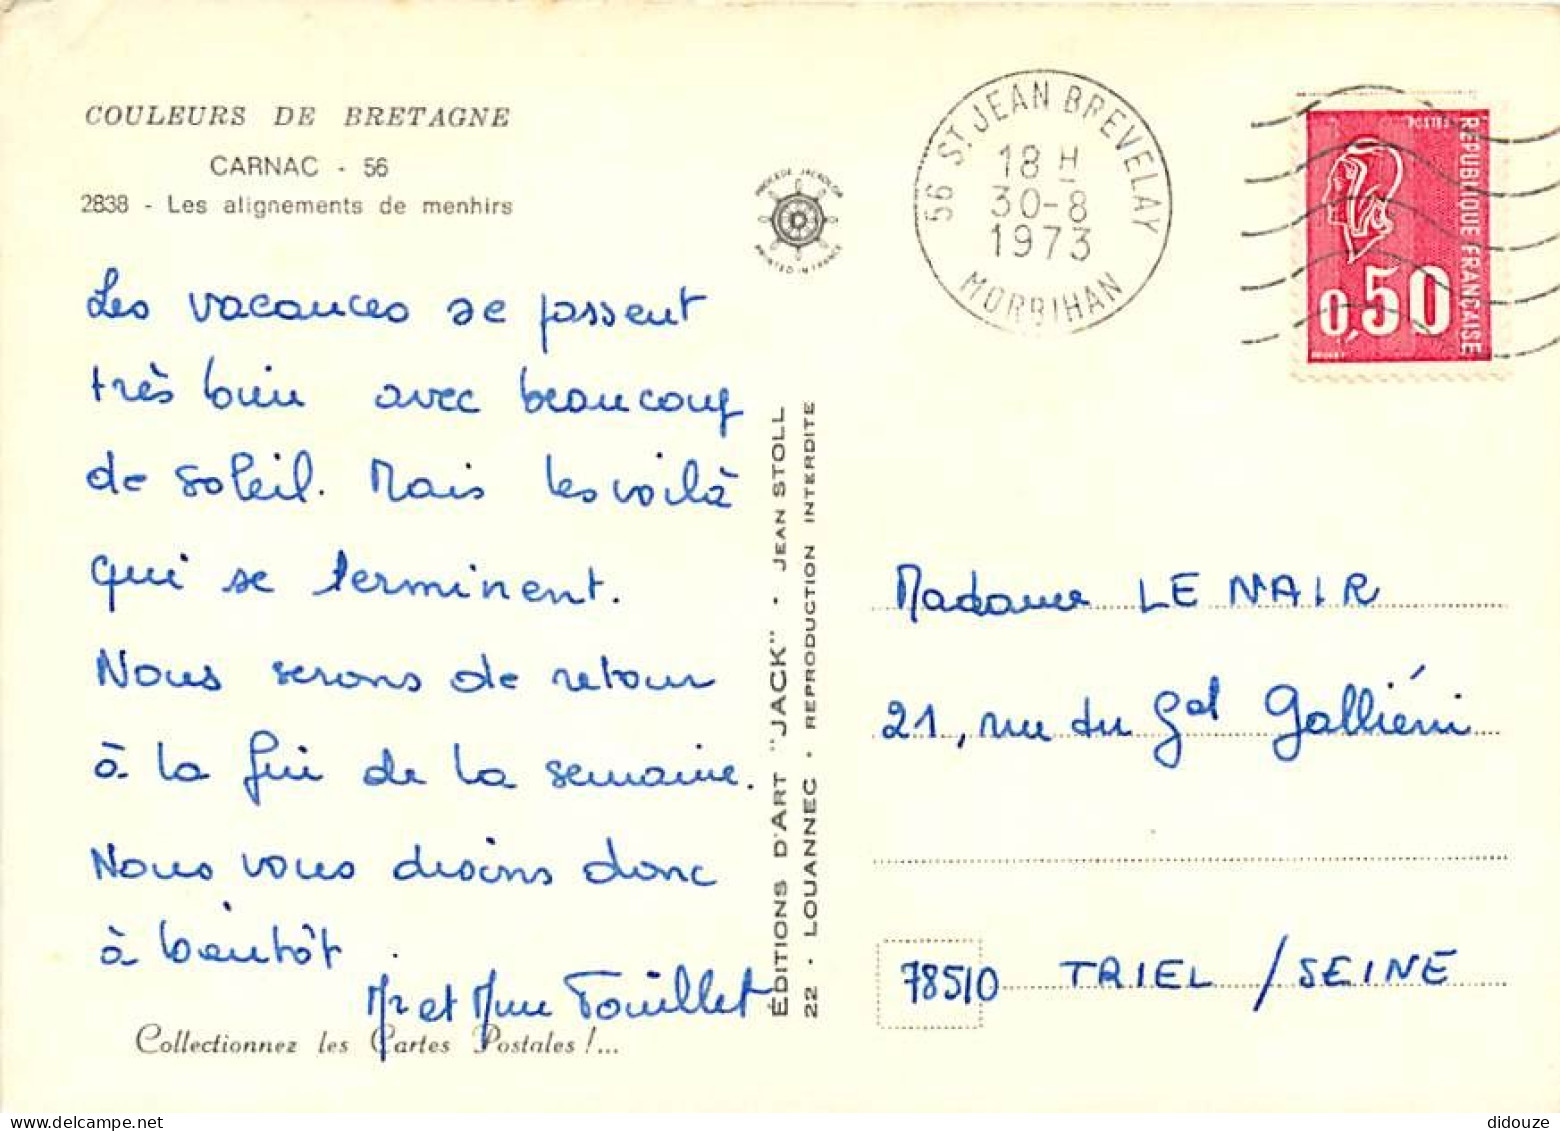 COULEURS DE BRETAGNE
CARNAC - 56
2838 - Les alignements de menhirs
Les vacances se passent
très bien avec beaucoup
de soleil. Mais les voilà
qui se terminent.
Nous serons de retour
à la fin de la semaine.
Nous vous disons donc
à bientôt.
Mr et Mme Fouillet
Collectionnez les Cartes Postales !...
PROCÉDÉ JACKOLOR
PRINTED IN FRANCE
ÉDITIONS D'ART "JACK" - JEAN STOLL
22 - LOUANNEC - REPRODUCTION INTERDITE
56 ST JEAN BREVELAY
18 H
30-8
1973
MORBIHAN
REPUBLIQUE FRANÇAISE
0,50
Madame LE NAIR
21, rue du Gal Galliéni
78510 TRIEL / SEINE
didouze